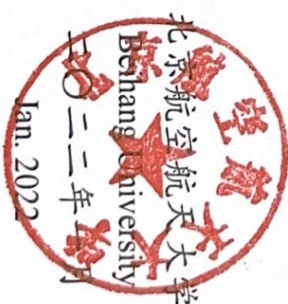 北京航空航天大学
Beihang University
二〇二二年一月
Jan. 2022